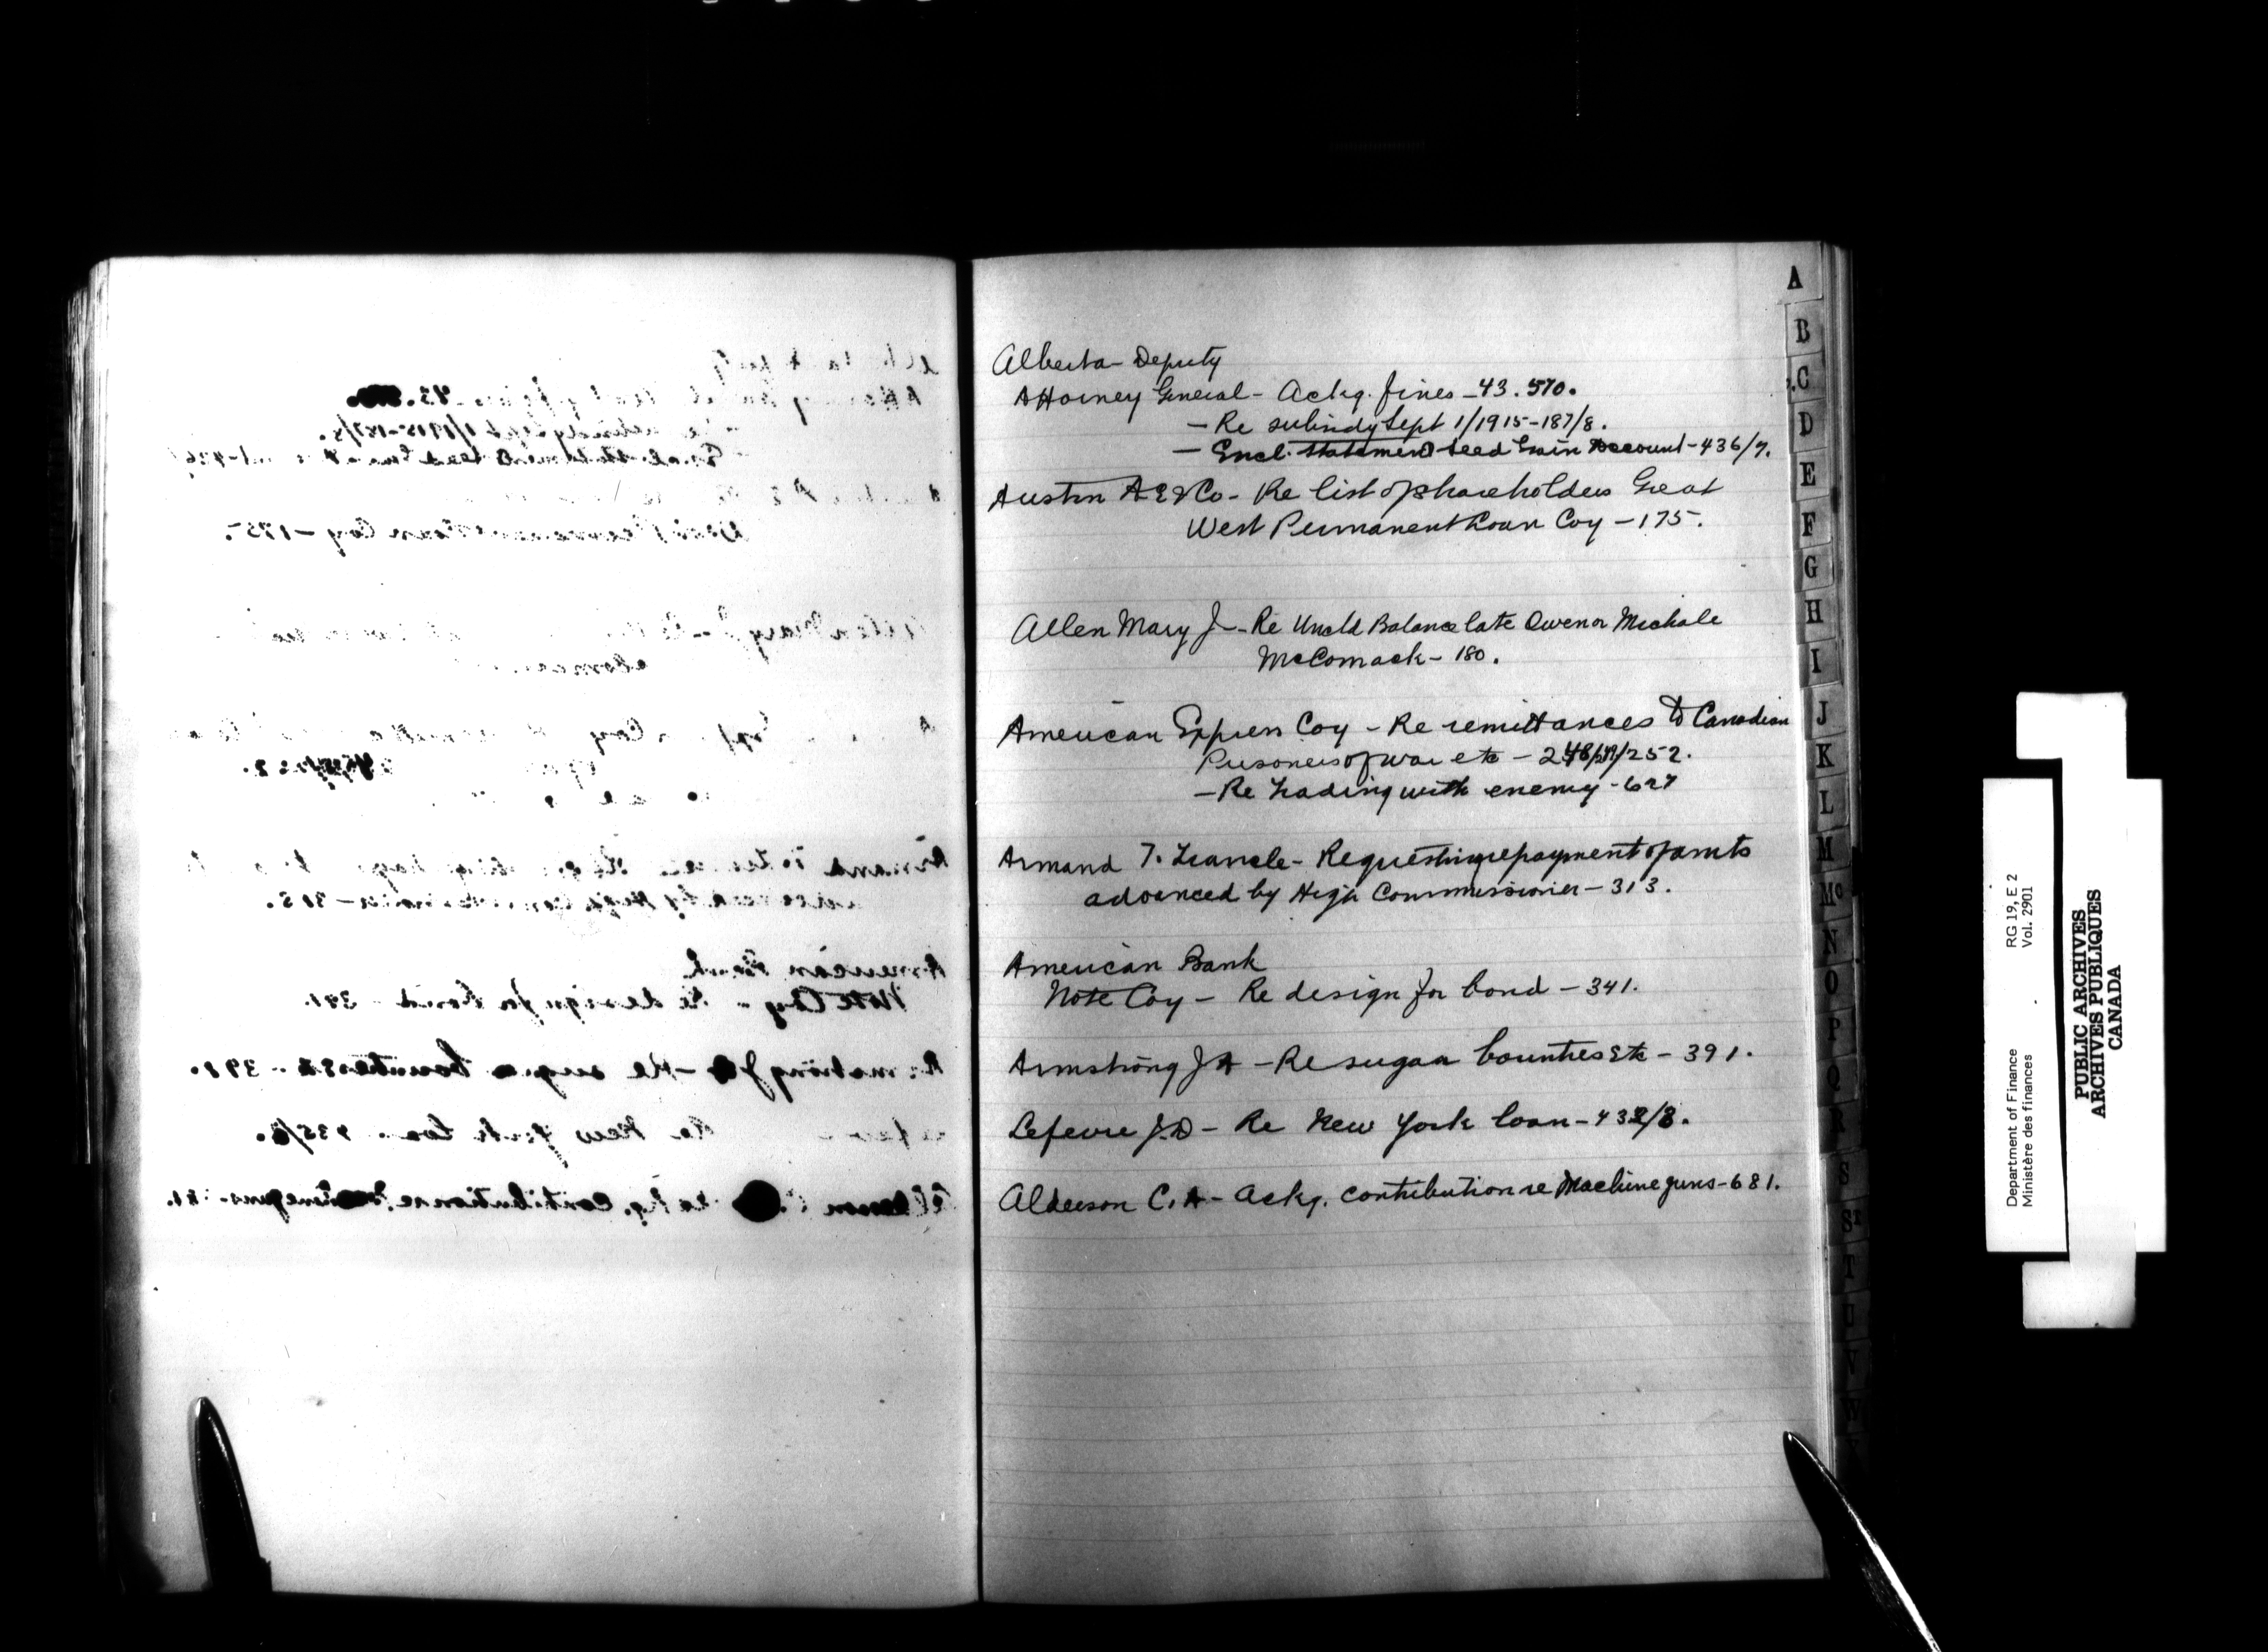 Alberta - Deputy
Attorney General - Ackg. fines - 43. 570.
- Re subsidy Sept 1/1915 - 187/8.
- Encl. statement Seed Grain Account - 436/7.
Austin A E & Co - Re list of shareholders Great
West Permanent Loan Coy - 175.
Allen Mary J - Re Uncld Balance late Owen or Michale
McComack - 180.
American Express Coy - Re remittances to Canadian
Prisoners of war etc - 252.
- Re trading with enemy - 627
Armand T. - Requesting repayment of amts
advanced by High Commissioner - 313.
American Bank
Note Coy - Re design for bond - 341.
Armstrong J A - Re sugar bounties etc - 391.
Lefevre J.D - Re New York loan -
Alderson C. A - Ackg. contribution re Machine guns - 681.
A
B
C
D
E
F
G
H
I
J
K
L
M
Mc
N
O
P
Q
R
S
T
U
V
Department of Finance RG 19, E 2
Ministère des finances Vol. 2901
PUBLIC ARCHIVES
ARCHIVES PUBLIQUES
CANADA